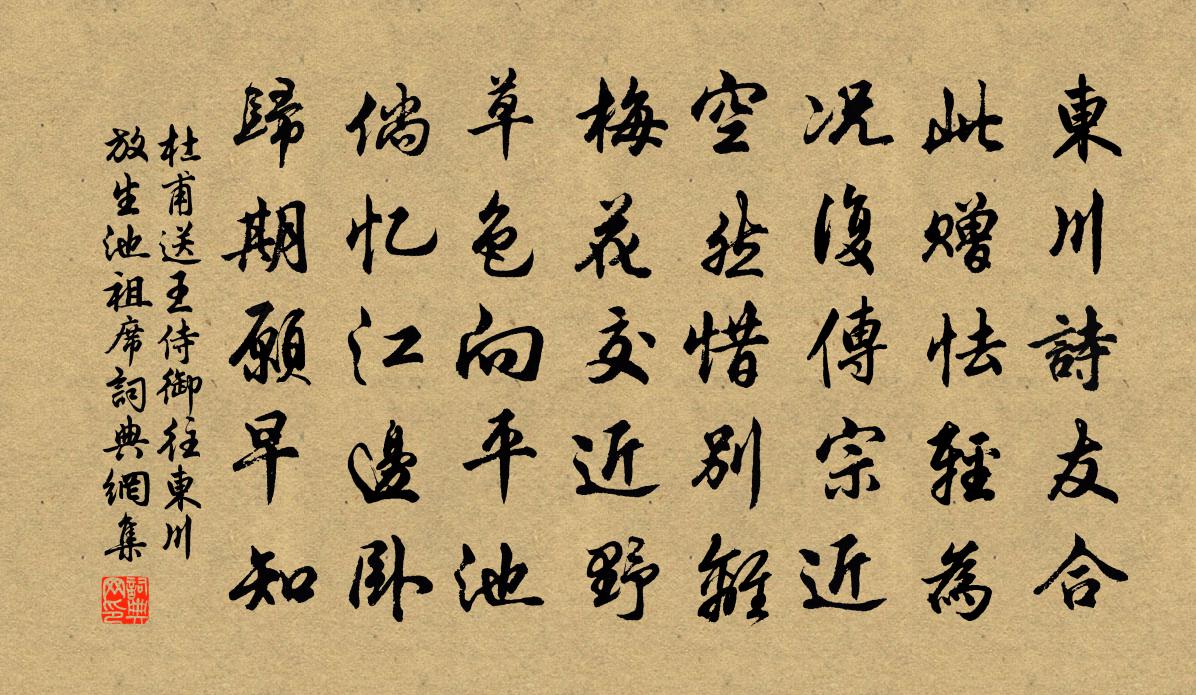 東川詩友合
此贈怯輕為
况復傳宗近
空然惜別離
梅花交近野
草色向平池
倘忆江邊卧
歸期願早知
杜甫送王侍御往東川
放生池祖席詞典網集
詞典网印